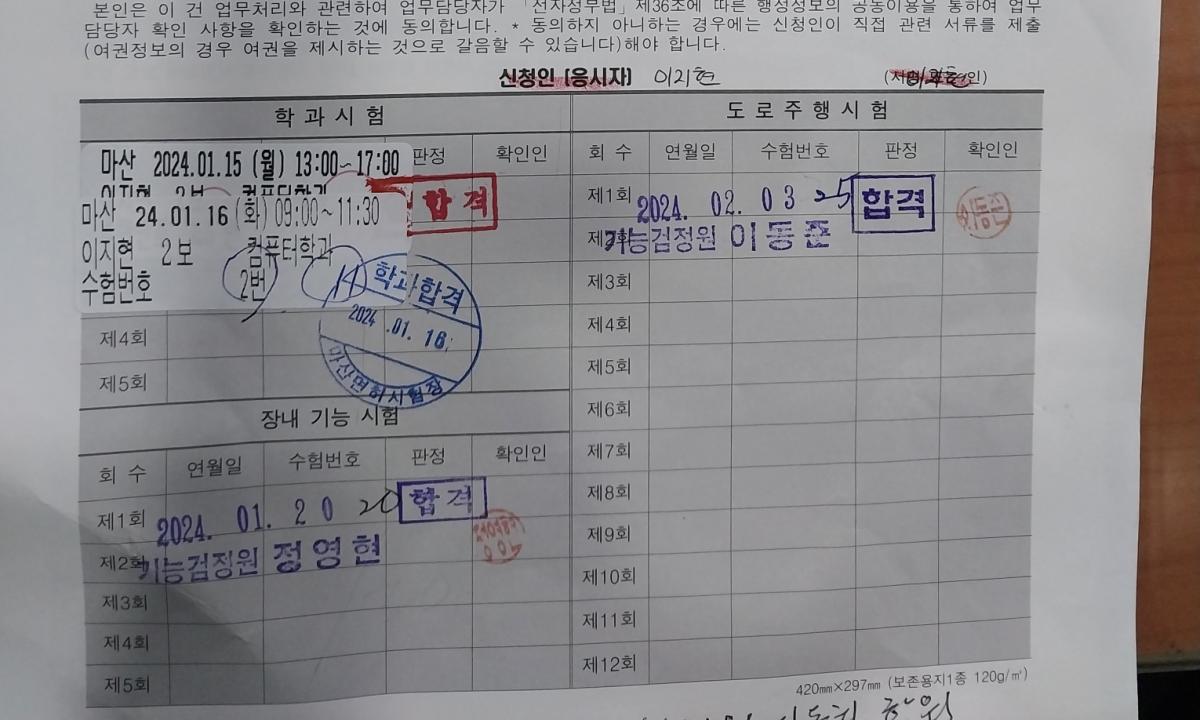 본인은 이 건 업무처리와 관련하여 업무담당자가 「전자정부법」 제36조에 따른 행정정보의 공동이용을 통하여 업무
담당자 확인 사항을 확인하는 것에 동의합니다. * 동의하지 아니하는 경우에는 신청인이 직접 관련 서류를 제출
(여권정보의 경우 여권을 제시하는 것으로 갈음할 수 있습니다)해야 합니다.
신청인 [응시자] 이지현
학 과 시 험
마산 2024.01.15 (월) 13:00~17:00 판정 확인인
이지현 2보 컴퓨터학과
합 격
마산 24.01.16 (화) 09:00~11:30
이지현 2보 컴퓨터학과
수험번호 2번
학과합격
2024 .01. 16
마산면허시험장
제4회
제5회
장내 기능 시험
회 수 연월일 수험번호 판정 확인인
제1회 2024. 01. 20 20 합격
제2회 기능검정원 정영현
제3회
제4회
제5회
도 로 주 행 시 험
회 수 연월일 수험번호 판정 확인인
제1회 2024. 02. 03 25 합격
제2회 기능검정원 이동준
제3회
제4회
제5회
제6회
제7회
제8회
제9회
제10회
제11회
제12회
420㎜×297㎜ (보존용지1종 120g/㎡)